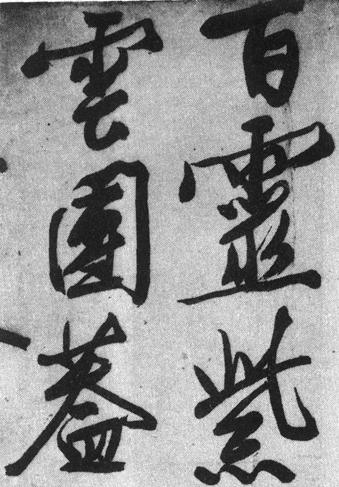 百靈紫
雲團蓋